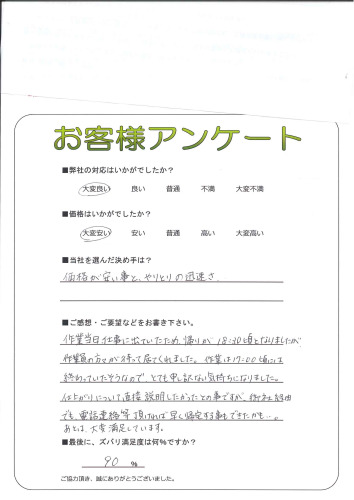 お客様アンケート
■弊社の対応はいかがでしたか？
大変良い 良い 普通 不満 大変不満
■価格はいかがでしたか？
大変安い 安い 普通 高い 大変高い
■当社を選んだ決め手は？
価格が安い事と、やりとりの迅速さ
■ご感想・ご要望などをお書き下さい。
作業当日仕事に出ていたため、帰りが18:30頃となりましたが
作業員の方々が待って居てくれました。作業は17:00頃には
終わっていたそうなので、とても申し訳ない気持ちになりました。
仕上がりについて直接説明したかったとの事ですが、経由
でも、電話連絡等頂ければ早く帰宅する事もできたかも…。
あとは、大変満足しています。
■最後に、ズバリ満足度は何%ですか？
90 %
ご協力頂き、誠にありがとうございました。